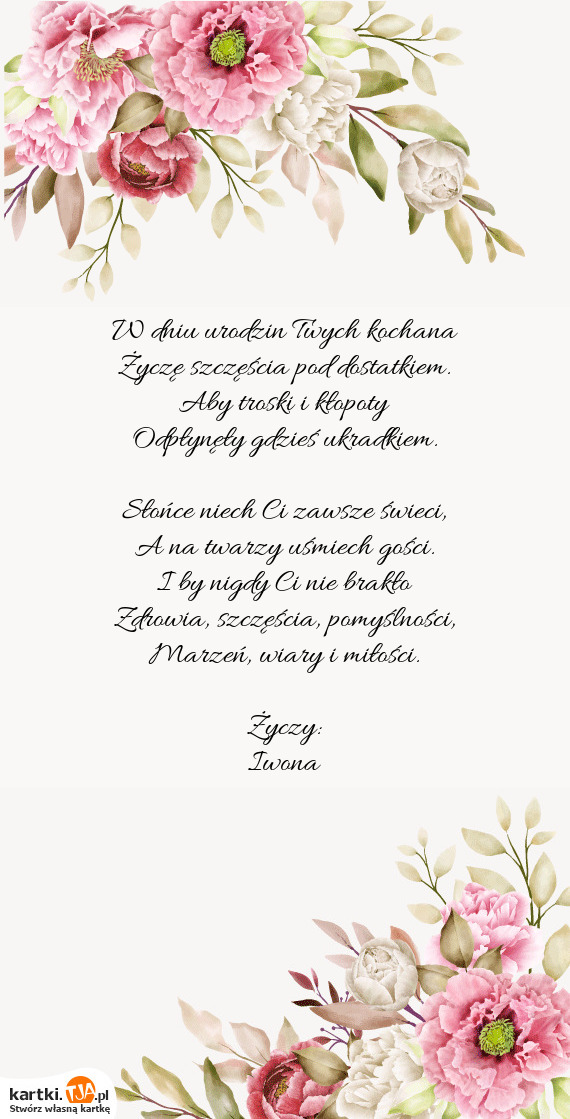 W dniu urodzin Twych kochana
Życzę szczęścia pod dostatkiem.
Aby troski i kłopoty
Odpłynęły gdzieś ukradkiem.
Słońce niech Ci zawsze świeci,
A na twarzy uśmiech gości.
I by nigdy Ci nie brakło
Zdrowia, szczęścia, pomyślności,
Marzeń, wiary i miłości.
Życzy:
Iwona
kartki.TJA.pl
Stwórz własną kartkę